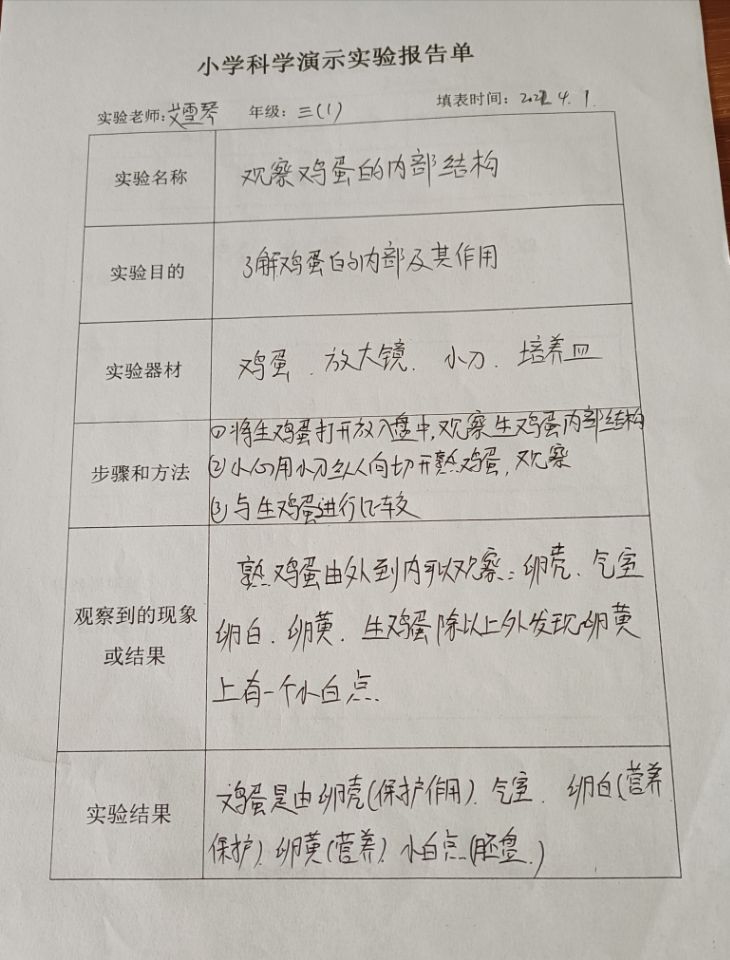 小学科学演示实验报告单
实验老师:艾雪琴 年级:三(1) 填表时间: 4.1
实验名称 观察鸡蛋的内部结构
实验目的 了解鸡蛋的内部及其作用
实验器材 鸡蛋、放大镜、小刀、培养皿
步骤和方法
①将生鸡蛋打开放入盘中,观察生鸡蛋内部结构
②小心用小刀纵向切开熟鸡蛋,观察
③与生鸡蛋进行比较
观察到的现象
或结果
熟鸡蛋由外到内可以观察:卵壳、气室
卵白、卵黄、生鸡蛋除以上外发现卵黄
上有一个小白点.
实验结果
鸡蛋是由卵壳(保护作用)、气室、卵白(营养
保护)、卵黄(营养)、小白点(胚盘.)